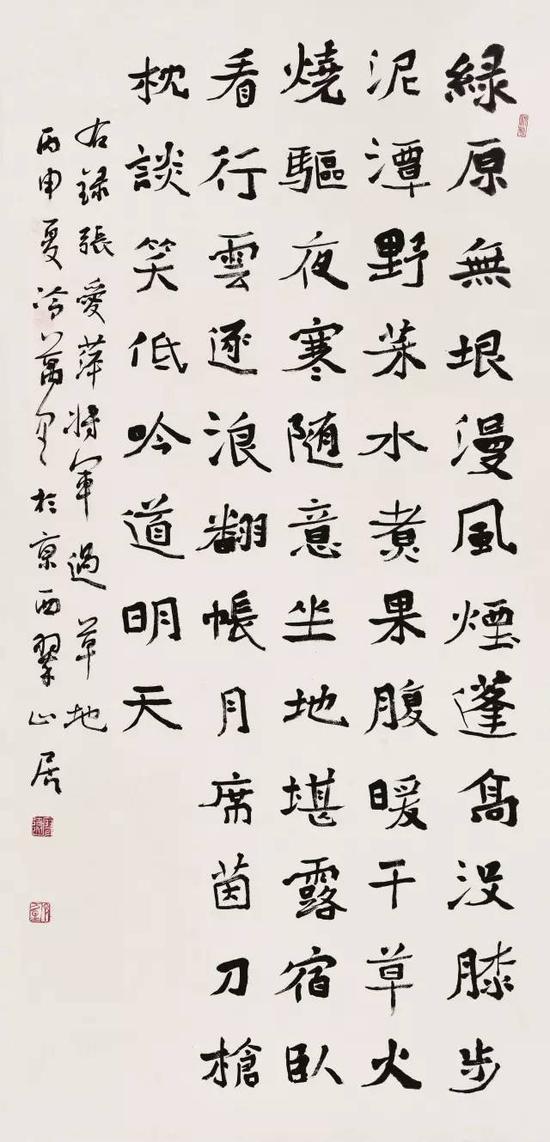 綠原無垠漫風煙蓬高没膝步
泥潭野菜水煮果腹暖干草火
燒驅夜寒随意坐地堪露宿臥
看行雲逐浪翻帳月席茵刀槍
枕談笑低吟道明天
右録張愛萍將軍過草地
丙申夏冷萬里於京西翠山居